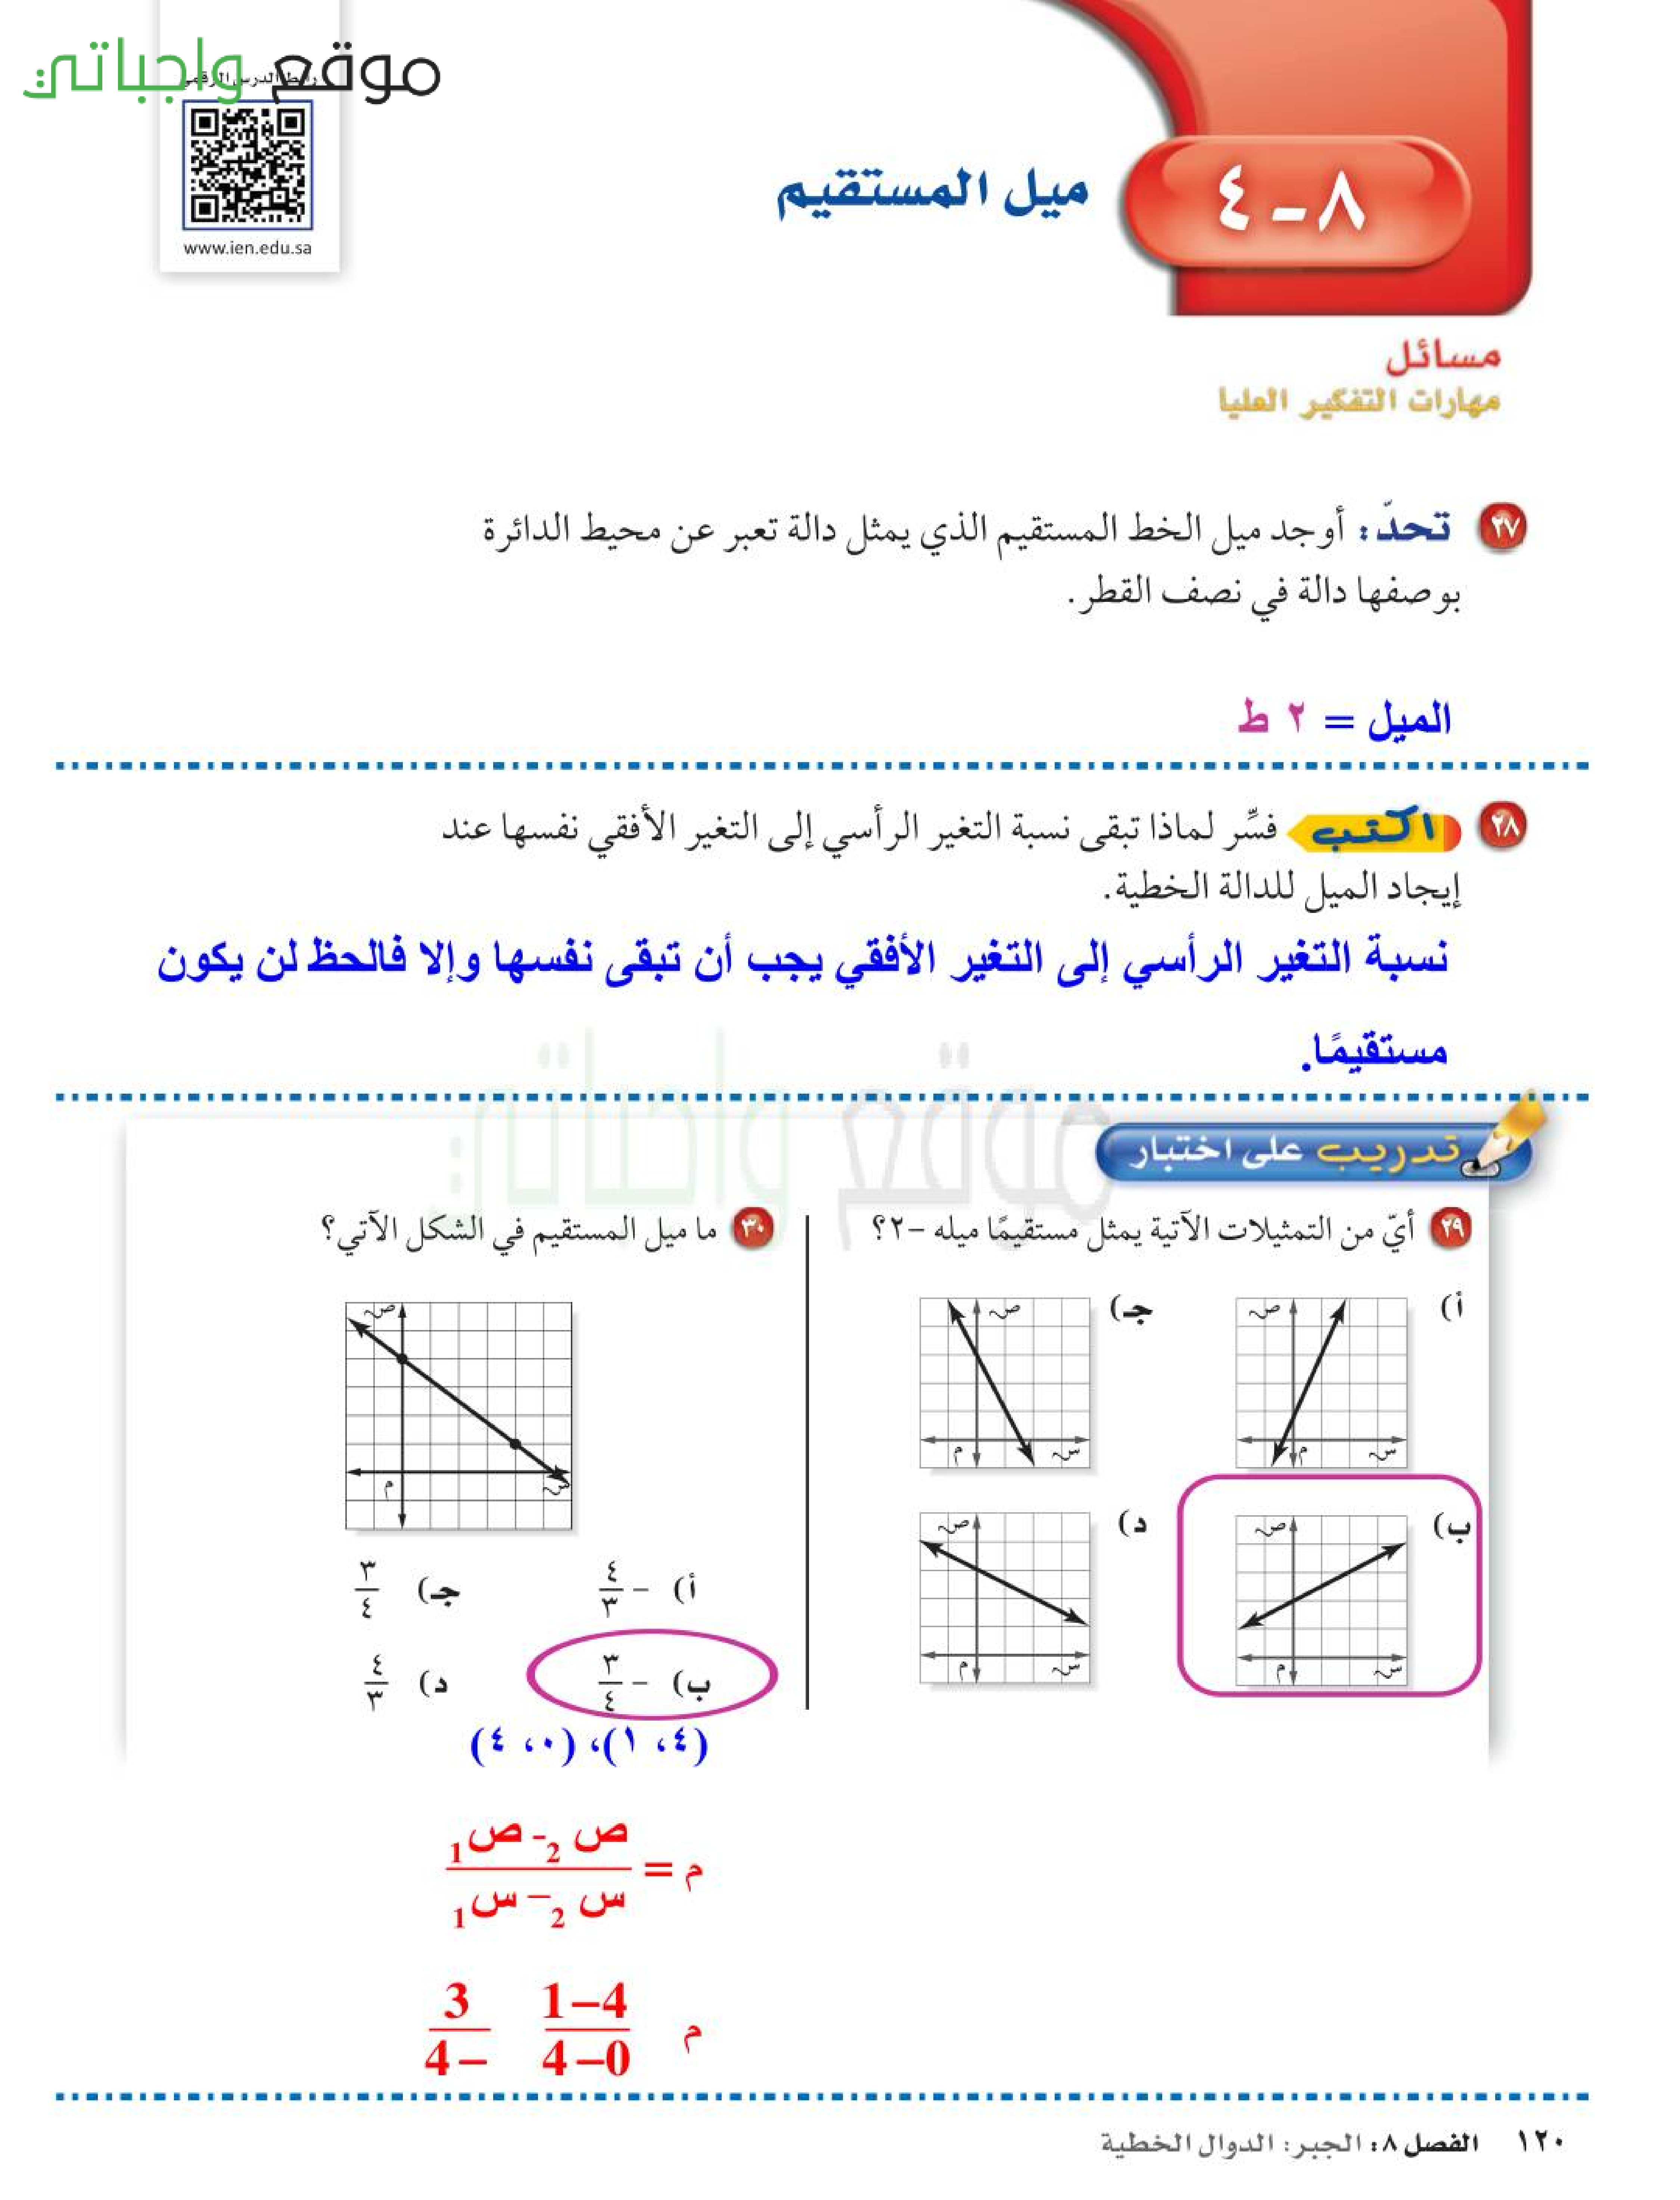 موقع واجباتي
رابط الدرس الرقمي
www.ien.edu.sa
٨-٤
ميل المستقيم
مسائل
مهارات التفكير العليا
٢٧ تحدّ: أوجد ميل الخط المستقيم الذي يمثل دالة تعبر عن محيط الدائرة
بوصفها دالة في نصف القطر.
الميل = ٢ ط
٢٨ اكتب فسِّر لماذا تبقى نسبة التغير الرأسي إلى التغير الأفقي نفسها عند
إيجاد الميل للدالة الخطية.
نسبة التغير الرأسي إلى التغير الأفقي يجب أن تبقى نفسها وإلا فالحظ لن يكون
مستقيمًا.
موقع واجباتي
تدريب على اختبار
٢٩ أيّ من التمثيلات الآتية يمثل مستقيمًا ميله -٢؟
أ)
ص
س
م
جـ)
ص
س
م
ب)
ص
س
م
د)
ص
س
م
٣٠ ما ميل المستقيم في الشكل الآتي؟
ص
س
م
أ) - ٤/٣
جـ) ٣/٤
ب) - ٣/٤
د) ٤/٣
(٤، ١)، (٠، ٤)
م = ص 2 - ص 1
س 2 – س 1
م 1–4 3
4–0 4–
١٢٠ الفصل ٨: الجبر: الدوال الخطية